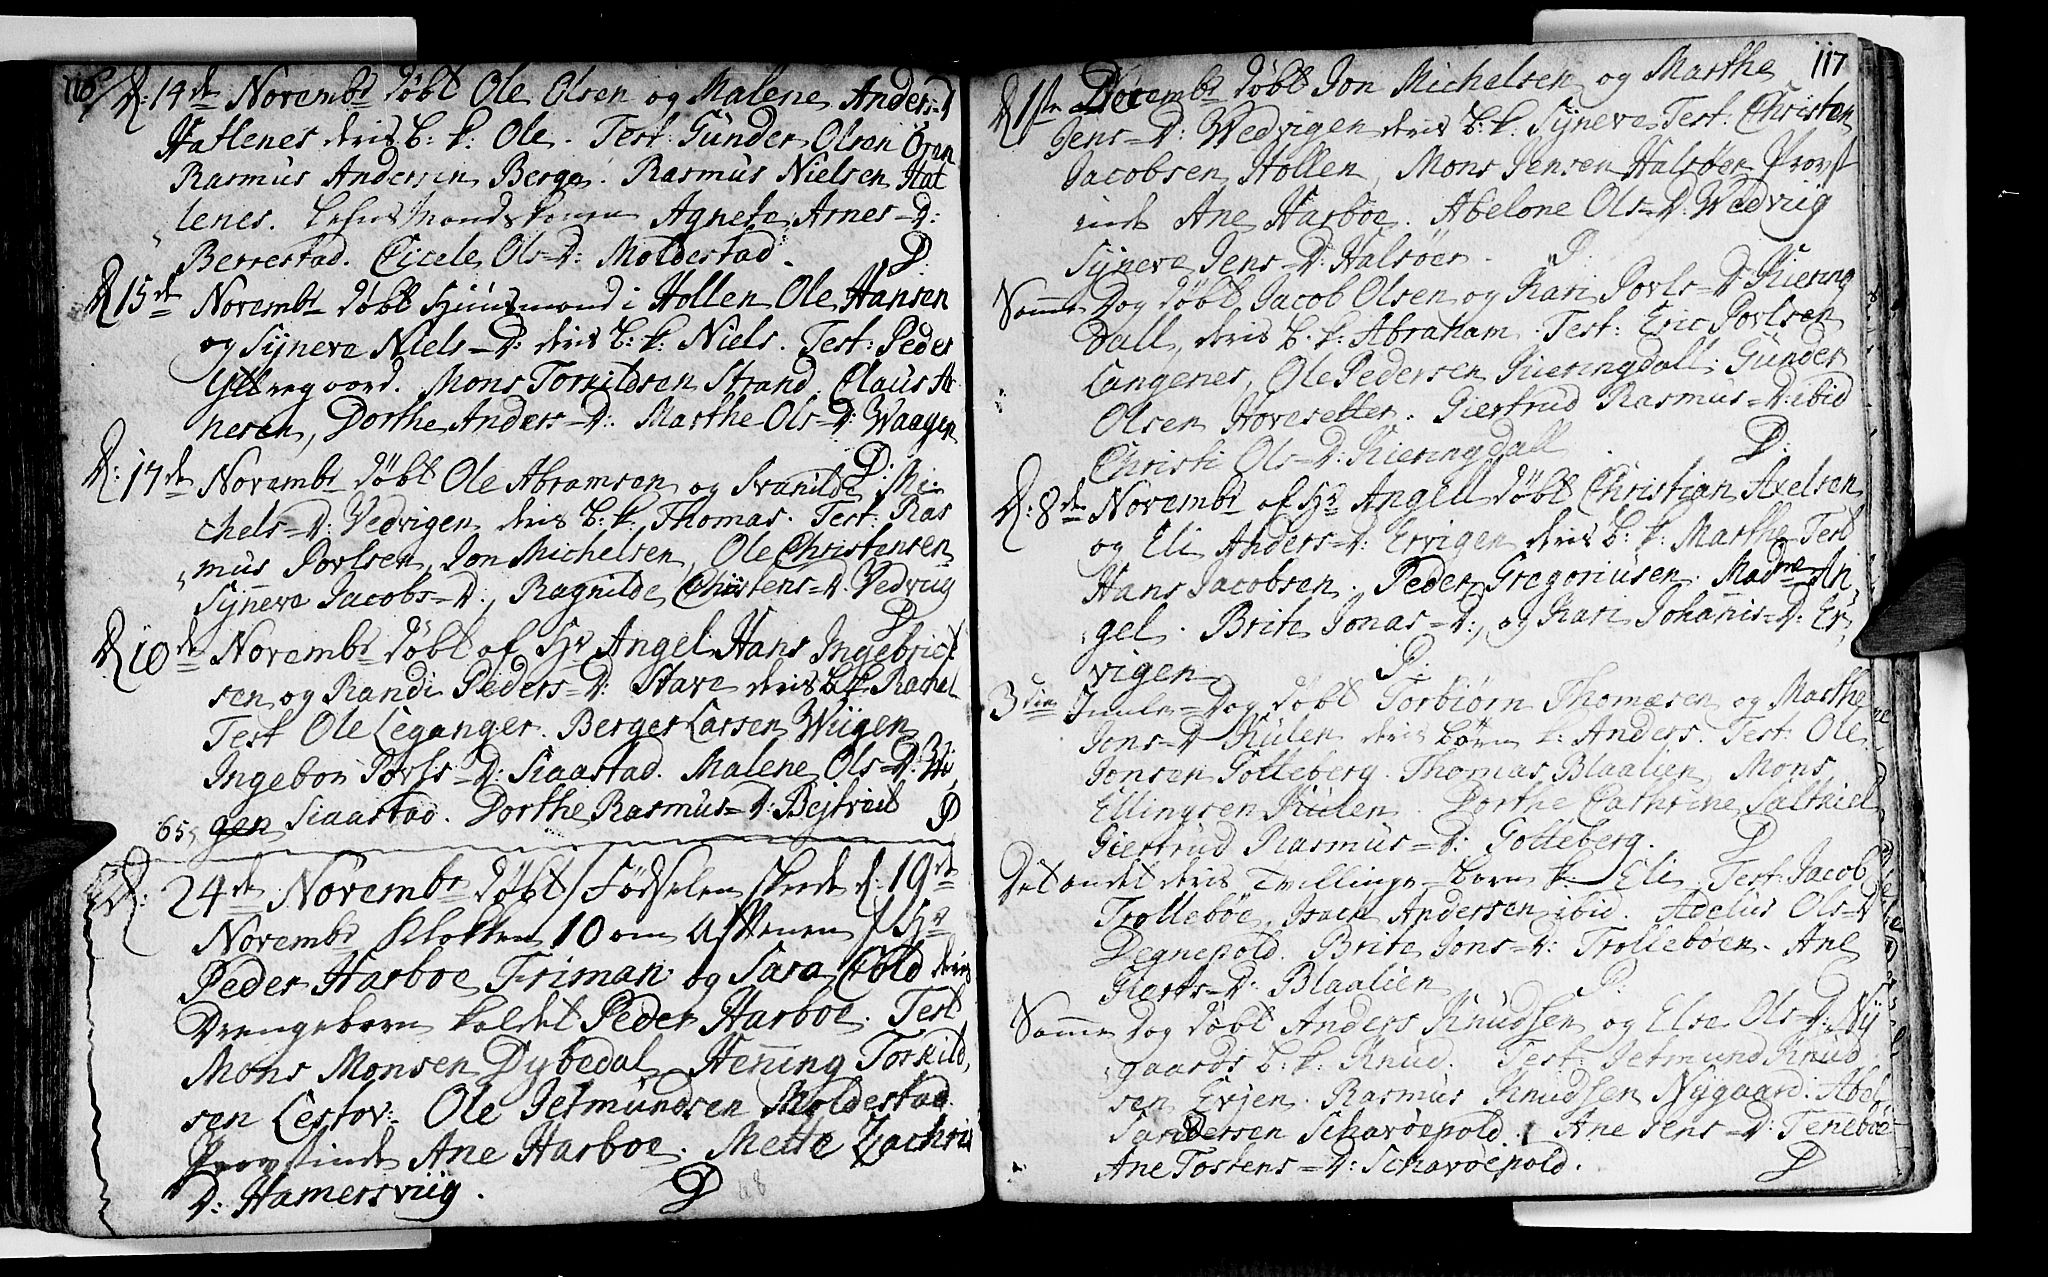 116
D: 14de Novembr døbt Ole Olsen og Malene Anders=D
Hatlenes deris b: k: Ole. Test: Gunder Olsen Øren
Rasmus Andersen Berge. Rasmus Nielsen Hat
lenes. Agnete Arnes=D:
Berrestad. Cicele Ols=D: Moldestad. D.
D 15de Novembr døbt Huusmand i Hollen Ole Hansen
og Sÿneve Niels=D: deris b: k: Niels. Test: Peder
Yttregaard. Mons Torkildsen Strand. Claus Ar
nesen, Dorthe Anders=D: Marthe Ols=D: Waagen
D:
D: 17de Novembr døbt Ole Abramsen og Iranilde Mi=
chels=D: Vedvigen deris b: k: Thomas. Test: Ras
mus Povlsen, Jon Michelsen, Ole Christensen
Sÿneve Jacobs=D:, Ragnilde Christens=D. Vedviig
D
D 10de Novembr døbt af Hr Angel Hans Ingebrict
sen og Randi Peders=D: Stave deris b: k: Rachel
Test Ole Leganger. Berger Larsen Wiigen
Ingebor Povls=D: Staastad. Malene Ols=D: Wi
65, gen Staastad. Dorthe Rasmus=D: D
D: 24de Novembr døbt /Fødselen skede d: 19de
Novembr Klokken 10 om Aftenen / Hr
Peder Harboe Friman og Sara Cold deris
Drengebarn kaldet Peder Harboe. Test
Mons Monsen Dybedal, Henning Torkild
sen Lestov: Ole Jetmundsen Moldestad.
Provstinde Ane Harboe. Mette Zachris
D: Hamersviig. D 48
117
D 1ste Decembr døbt Jon Michelsen og Marthe
Jens=D: Wedvigen deris b: k: Sÿneve Test. Christen
Jacobsen Hollen, Mons Jensen Halsøer Provst
inde Ane Harboe. Abelone Ols=D: Wedviig
Sÿneve Jens=D: Halsøer. D.
Samme Dag døbt Jacob Olsen og Kari Povls=D Kiering
Dall, deris b. k: Abraham. Test: Eric Povlsen
Langenes, Ole Pedersen Kieringdall; Gunder
Olsen Hovesetter. Giertrud Rasmus=D: ibid
Christi Ols=D: Kieringdall D:
D: 8de Novembr af Hr Angell døbt Christian Axelsen
og Eli Anders=D: Ervigen deris b: k: Marthe Test
Hans Jacobsen. Peder Gregoriusen. Madme An,
gel. Brite Jonas=D:, og Kari Johanis=D: Er,
vigen D:
3die Juule=Dag døbt Torbiørn Thomæsen og Marthe
Jons=D Kulen deris børn k: Anders. Test: Ole
Jonsen Gotteberg. Thomas Blaalien, Mons
Ellingsen Kulen. Dorthe Cathrine Saltkiel
Giertrud Rasmus=D: Gotteberg. D
Det andet deris Tvillinge=barn k: Eli. Test: Jacob
Trollebøe, Isach Andersen ibid. Adelus Ols=D
Degnepold. Brite Jons=D: Trollebøen. Ane
=D: Blaalien D.
Samme Dag døbt Anders Knudsen og Else Ols=D: Nÿ
gaards b: k: Knud. Test: Jetmund Knud
sen Erjen. Rasmus Knudsen Nygaard: Abel
Sandersen Scharøepold. Ane Jens=D: Tenebøe
Ane Tostens=D: Scharøepold. D